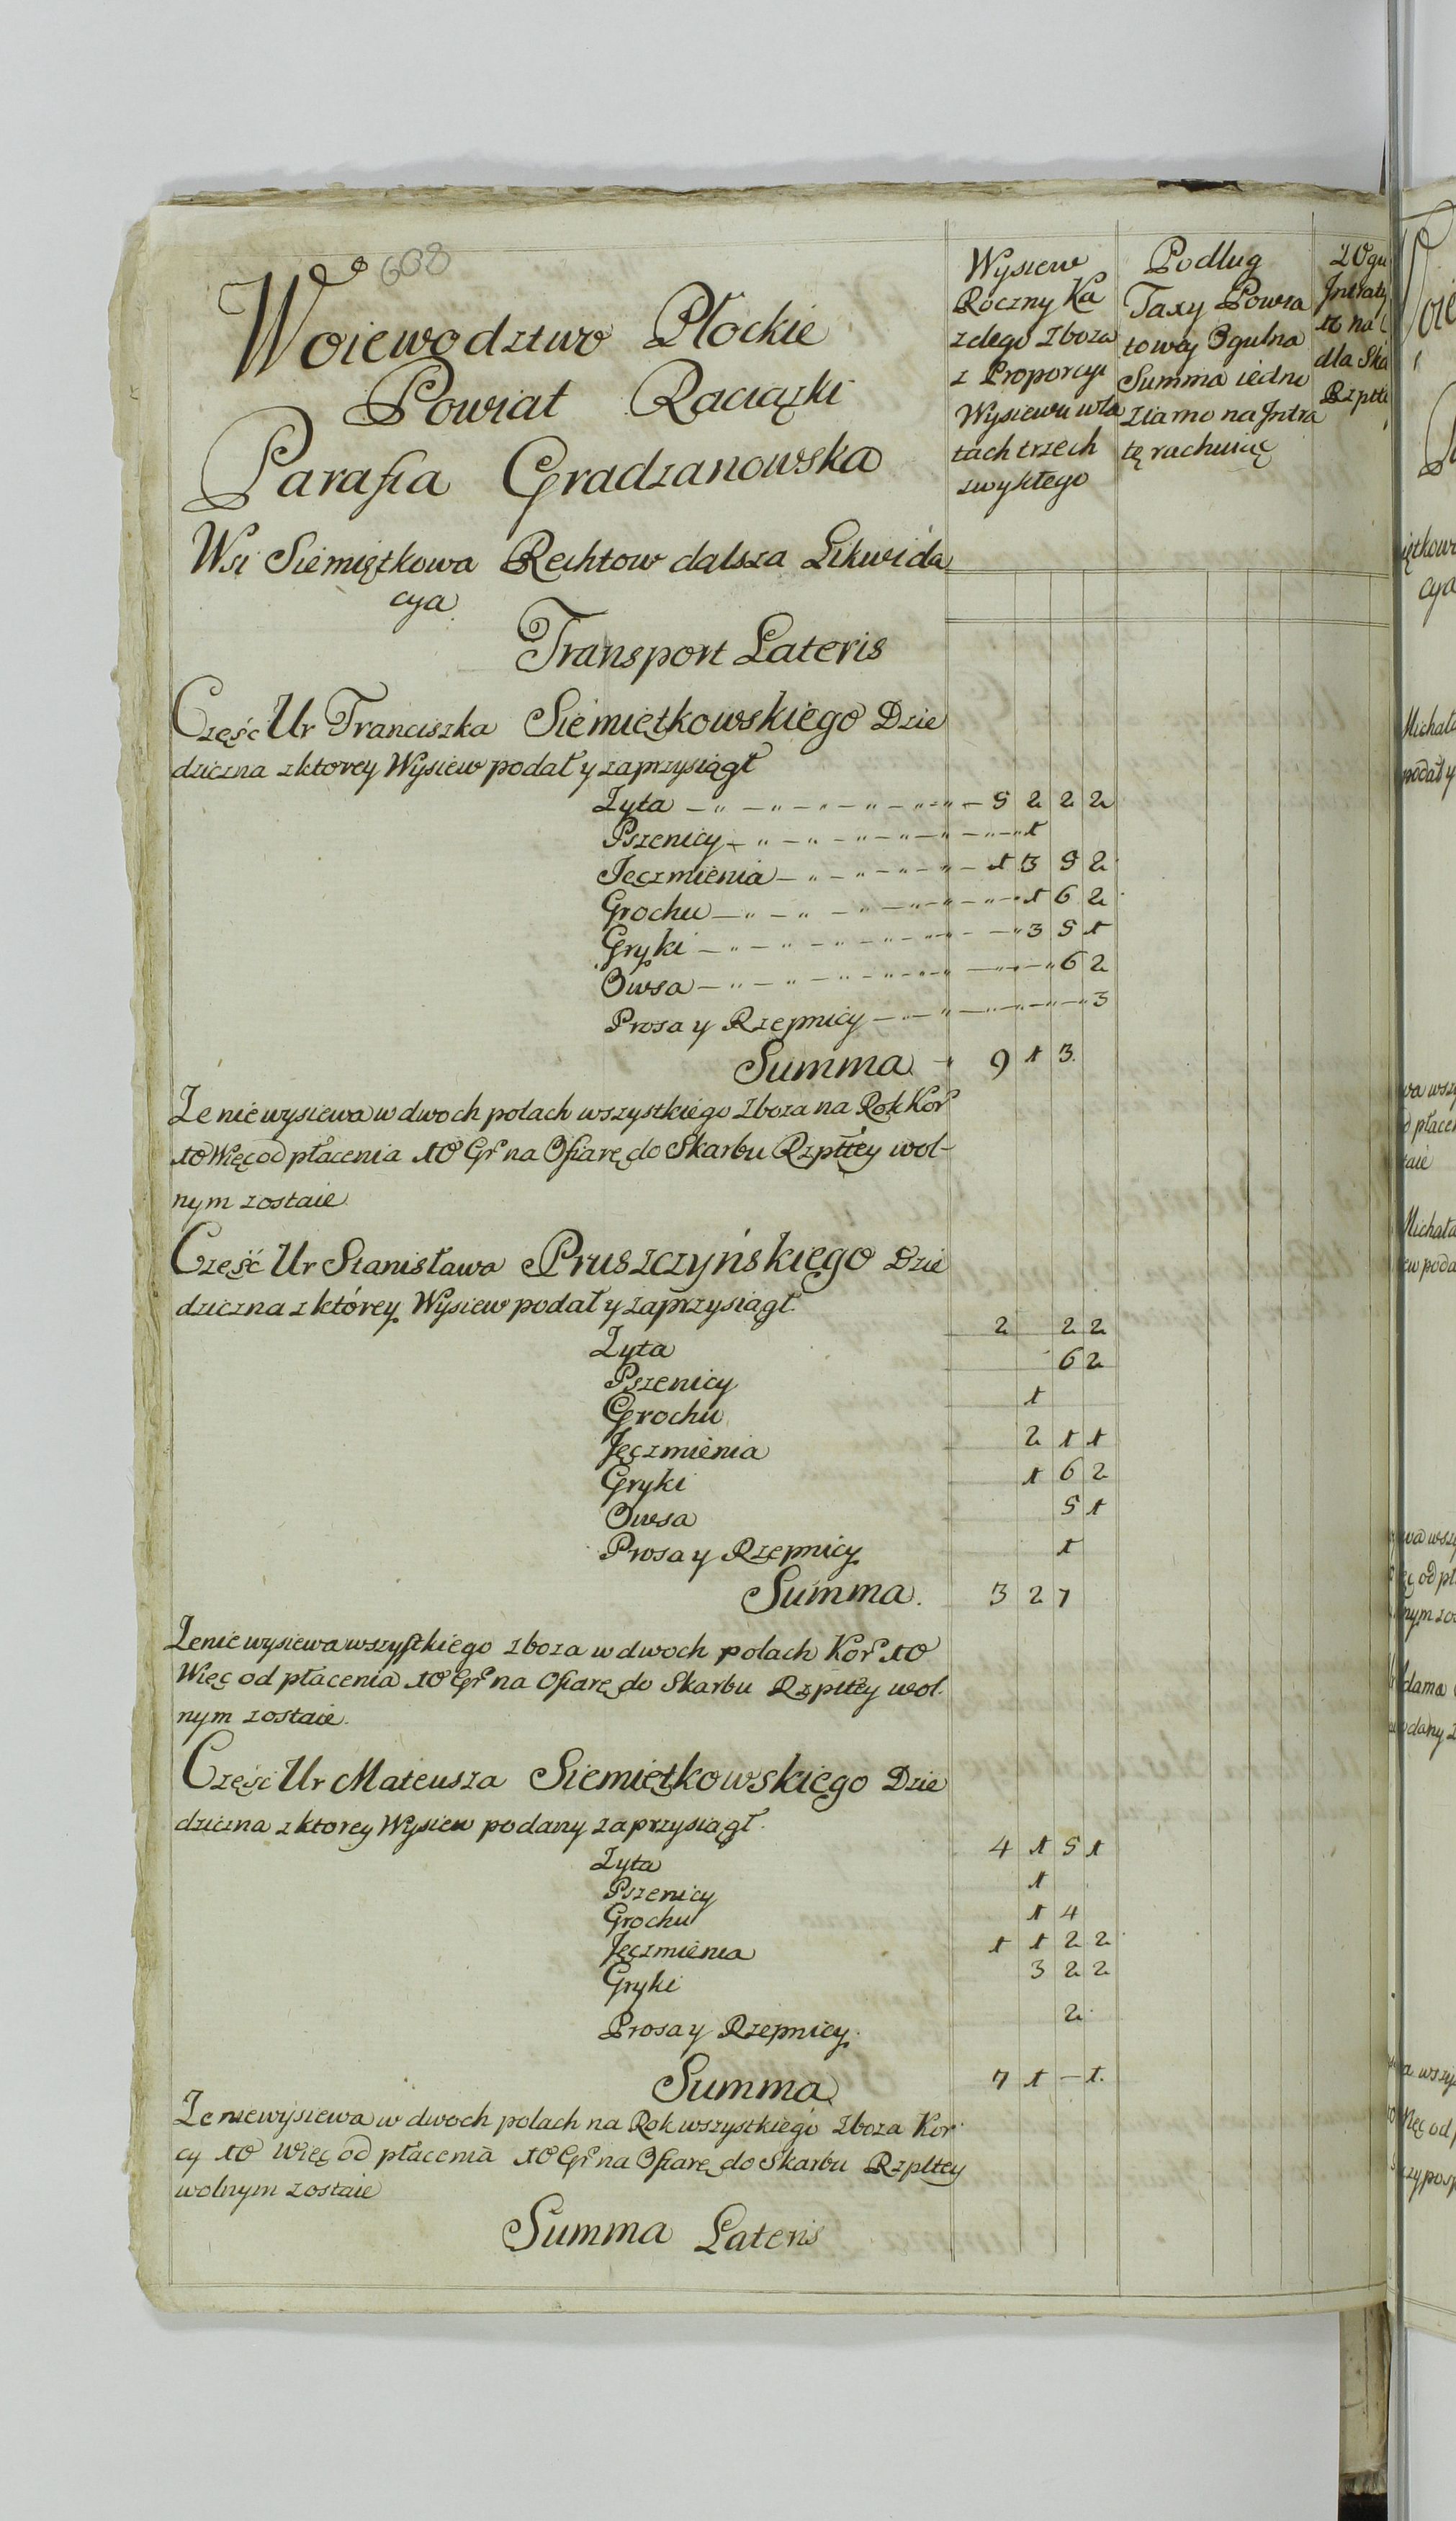 608
Woiewodztwo Płockie
Powiat Raciązki
Parafia Gradzanowska
Wsi Siemiątkowa Rechtow dalsza Likwida
cya
Wysiew
Roczny Ka
zdego Zboza
z Proporcyi
Wysiewu w la
tach trzech
zwykłego
Podług
Taxy Powia
towey Ogulna
Summa iedno
ziarno na Intra
tę rachuiąc
z Ogu
Intraty
to na
dla Ska
Rzplte
Transport Lateris
Część Ur Franciszka Siemiętkowskiego Dzie
dziczna z ktorey Wysiew podał y zaprzysiągł
Zyta 5 2 2 2
Pszenicy 1
Jęczmienia 1 3 5 2
Grochu 1 6 2
Gryki 3 5 1
Owsa 6 2
Prosa y Rzepnicy 3
Summa 9 1 3
Ze nie wysiewa w dwoch polach wszystkiego Zboza na Rok Kor
10 Więc od płacenia 10 Gr na Ofiarę do Skarbu Rzpltey wol-
nym zostaie
Część Ur Stanisława Pruszczyńskiego Dzie
dziczna z którey Wysiew podał y zaprzysiągł
Zyta 2 2 2
Pszenicy 6 2
Grochu 1
Jęczmienia 2 1 1
Gryki 1 6 2
Owsa 5 1
Prosa y Rzepnicy 1
Summa. 3 2 7
Ze nie wysiewa wszystkiego zboza w dwoch polach Kor 10
Więc od płacenia 10 Gr na Ofiarę do Skarbu Rzpltey wol.
nym zostaie.
Część Ur Mateusza Siemiętkowskiego Dzie
dziczna z ktorey Wysiew podany zaprzysiągł.
Zyta 4 1 5 1
Pszenicy 1
Grochu 1 4
Jęczmienia 1 1 2 2
Gryki 3 2 2
Prosa y Rzepnicy. 2
Summa 7 1 – 1.
Ze nie wysiewa w dwoch polach na Rok wszystkiego Zboza Kor
cy 10 Więc od płacenia 10 Gr na Ofiarę do Skarbu Rzpltey
wolnym zostaie
Summa Lateris